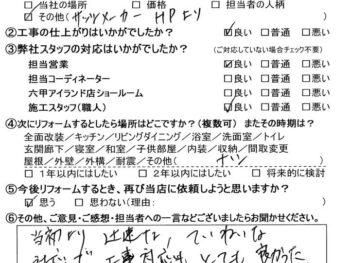 □当社の場所 □価格 □担当者の人柄
☑その他( サッシメーカー HPより )
②工事の仕上がりはいかがでしたか? ☑良い □普通 □悪い
③弊社スタッフの対応はいかがでしたか? (ご対応していない場合チェック不要)
担当営業 ☑良い □普通 □悪い
担当コーディネーター □良い □普通 □悪い
六甲アイランド店ショールーム □良い □普通 □悪い
施工スタッフ(職人) ☑良い □普通 □悪い
④次にリフォームするとしたら場所はどこですか?(複数可) またその時期は?
全面改装/キッチン/リビングダイニング/浴室/洗面室/トイレ
玄関廊下/寝室/和室/子供部屋/内装/収納/間取変更
屋根/外壁/外構/耐震/その他( ナシ )
□1年以内にはしたい □2年以内にはしたい □将来的に検討
⑤今後リフォームするとき、再び当店に依頼しようと思いますか?
☑思う □思わない(理由: )
⑥その他、ご意見・ご感想・担当者への一言などございましたらお聞かせください。
当初より 迅速な、ていねいな
工事対応は とても 良かった